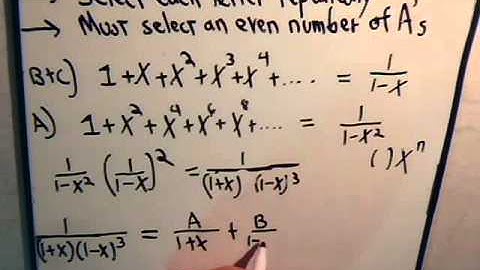 → Select each letter repeatedly
→ Must select an even number of A's
B+C) 1+x+x²+x³+x⁴+.... = 1/(1-x)
A) 1+x²+x⁴+x⁶+x⁸+.... = 1/(1-x²)
1/(1-x²) (1/(1-x))² = 1/((1+x)(1-x)³) ( )xⁿ
1/((1+x)(1-x)³) = A/(1+x) + B/(1-